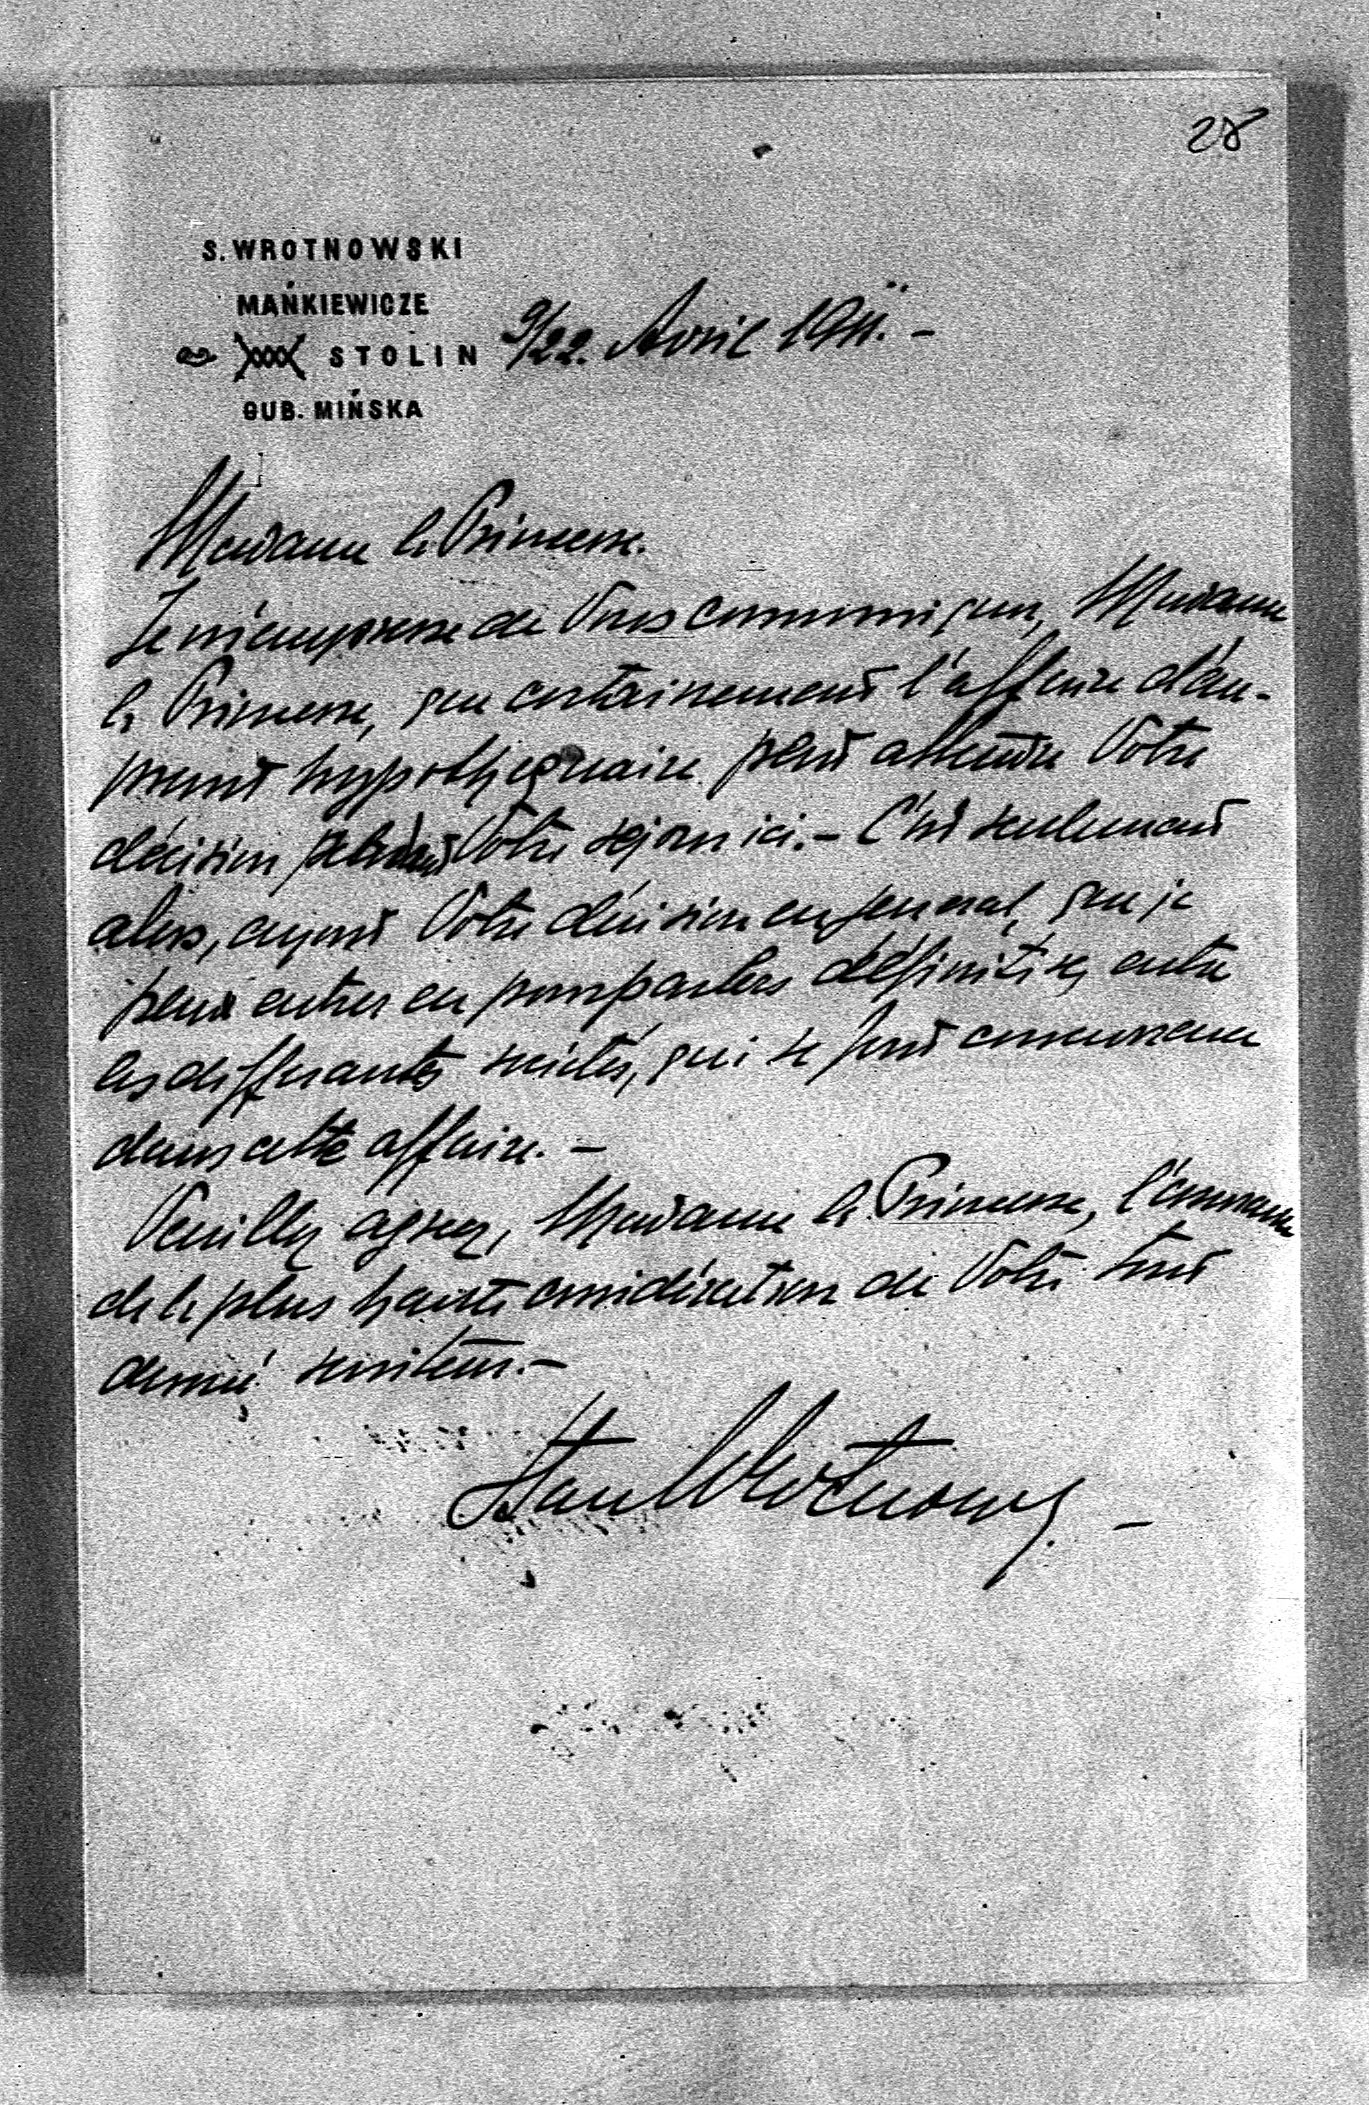 28
S. WROTNOWSKI
MAŃKIEWICZE
STOLIN
GUB. MIŃSKA
9/22. Avril 1911. –
Madame la Princesse.
Je m'empresse de Vous communiquer, Madame
la Princesse, que certainement l'affaire d'em-
prunt hypothequaire peut attendre Votre
décision Votre sejour ici. – C'est seulement
alors, ayant Votre décision en general, que je
peux entrer en pourparlers définitifs entre
les differants societés, qui se font concurrence
dans cette affaire. –
Veuillez agreez, Madame la Princesse, l'assurance
de la plus haute considération de Votre tout
devoué serviteur. –
Stan Wrotnowski. –